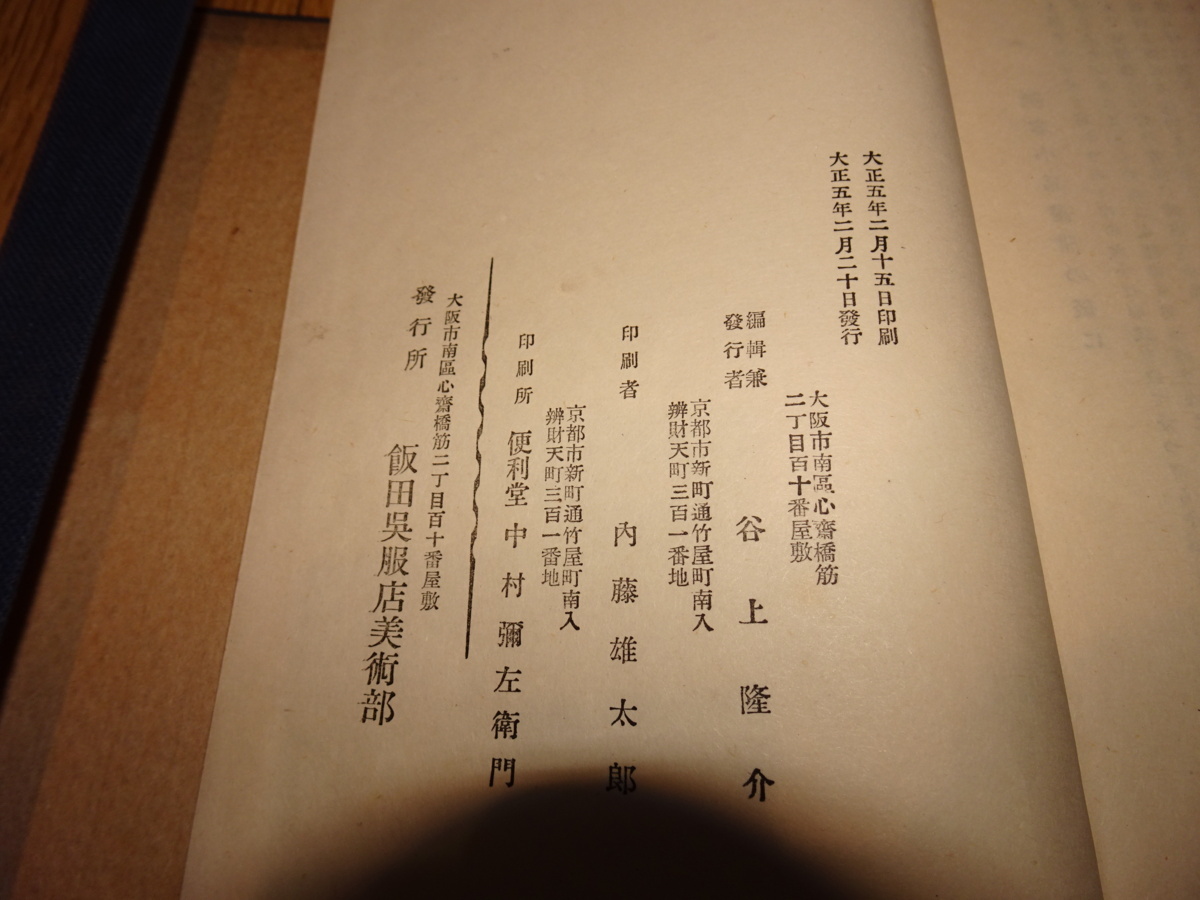 大正五年二月十五日印刷
大正五年二月二十日發行
大阪市南區心齋橋筋
二丁目百十番屋敷
編輯兼
發行者
谷上隆介
京都市新町通竹屋町南入
辨財天町三百一番地
印刷者
內藤雄太郎
京都市新町通竹屋町南入
辨財天町三百一番地
印刷所
便利堂中村彌左衛門
大阪市南區心齋橋筋二丁目百十番屋敷
發行所
飯田吳服店美術部